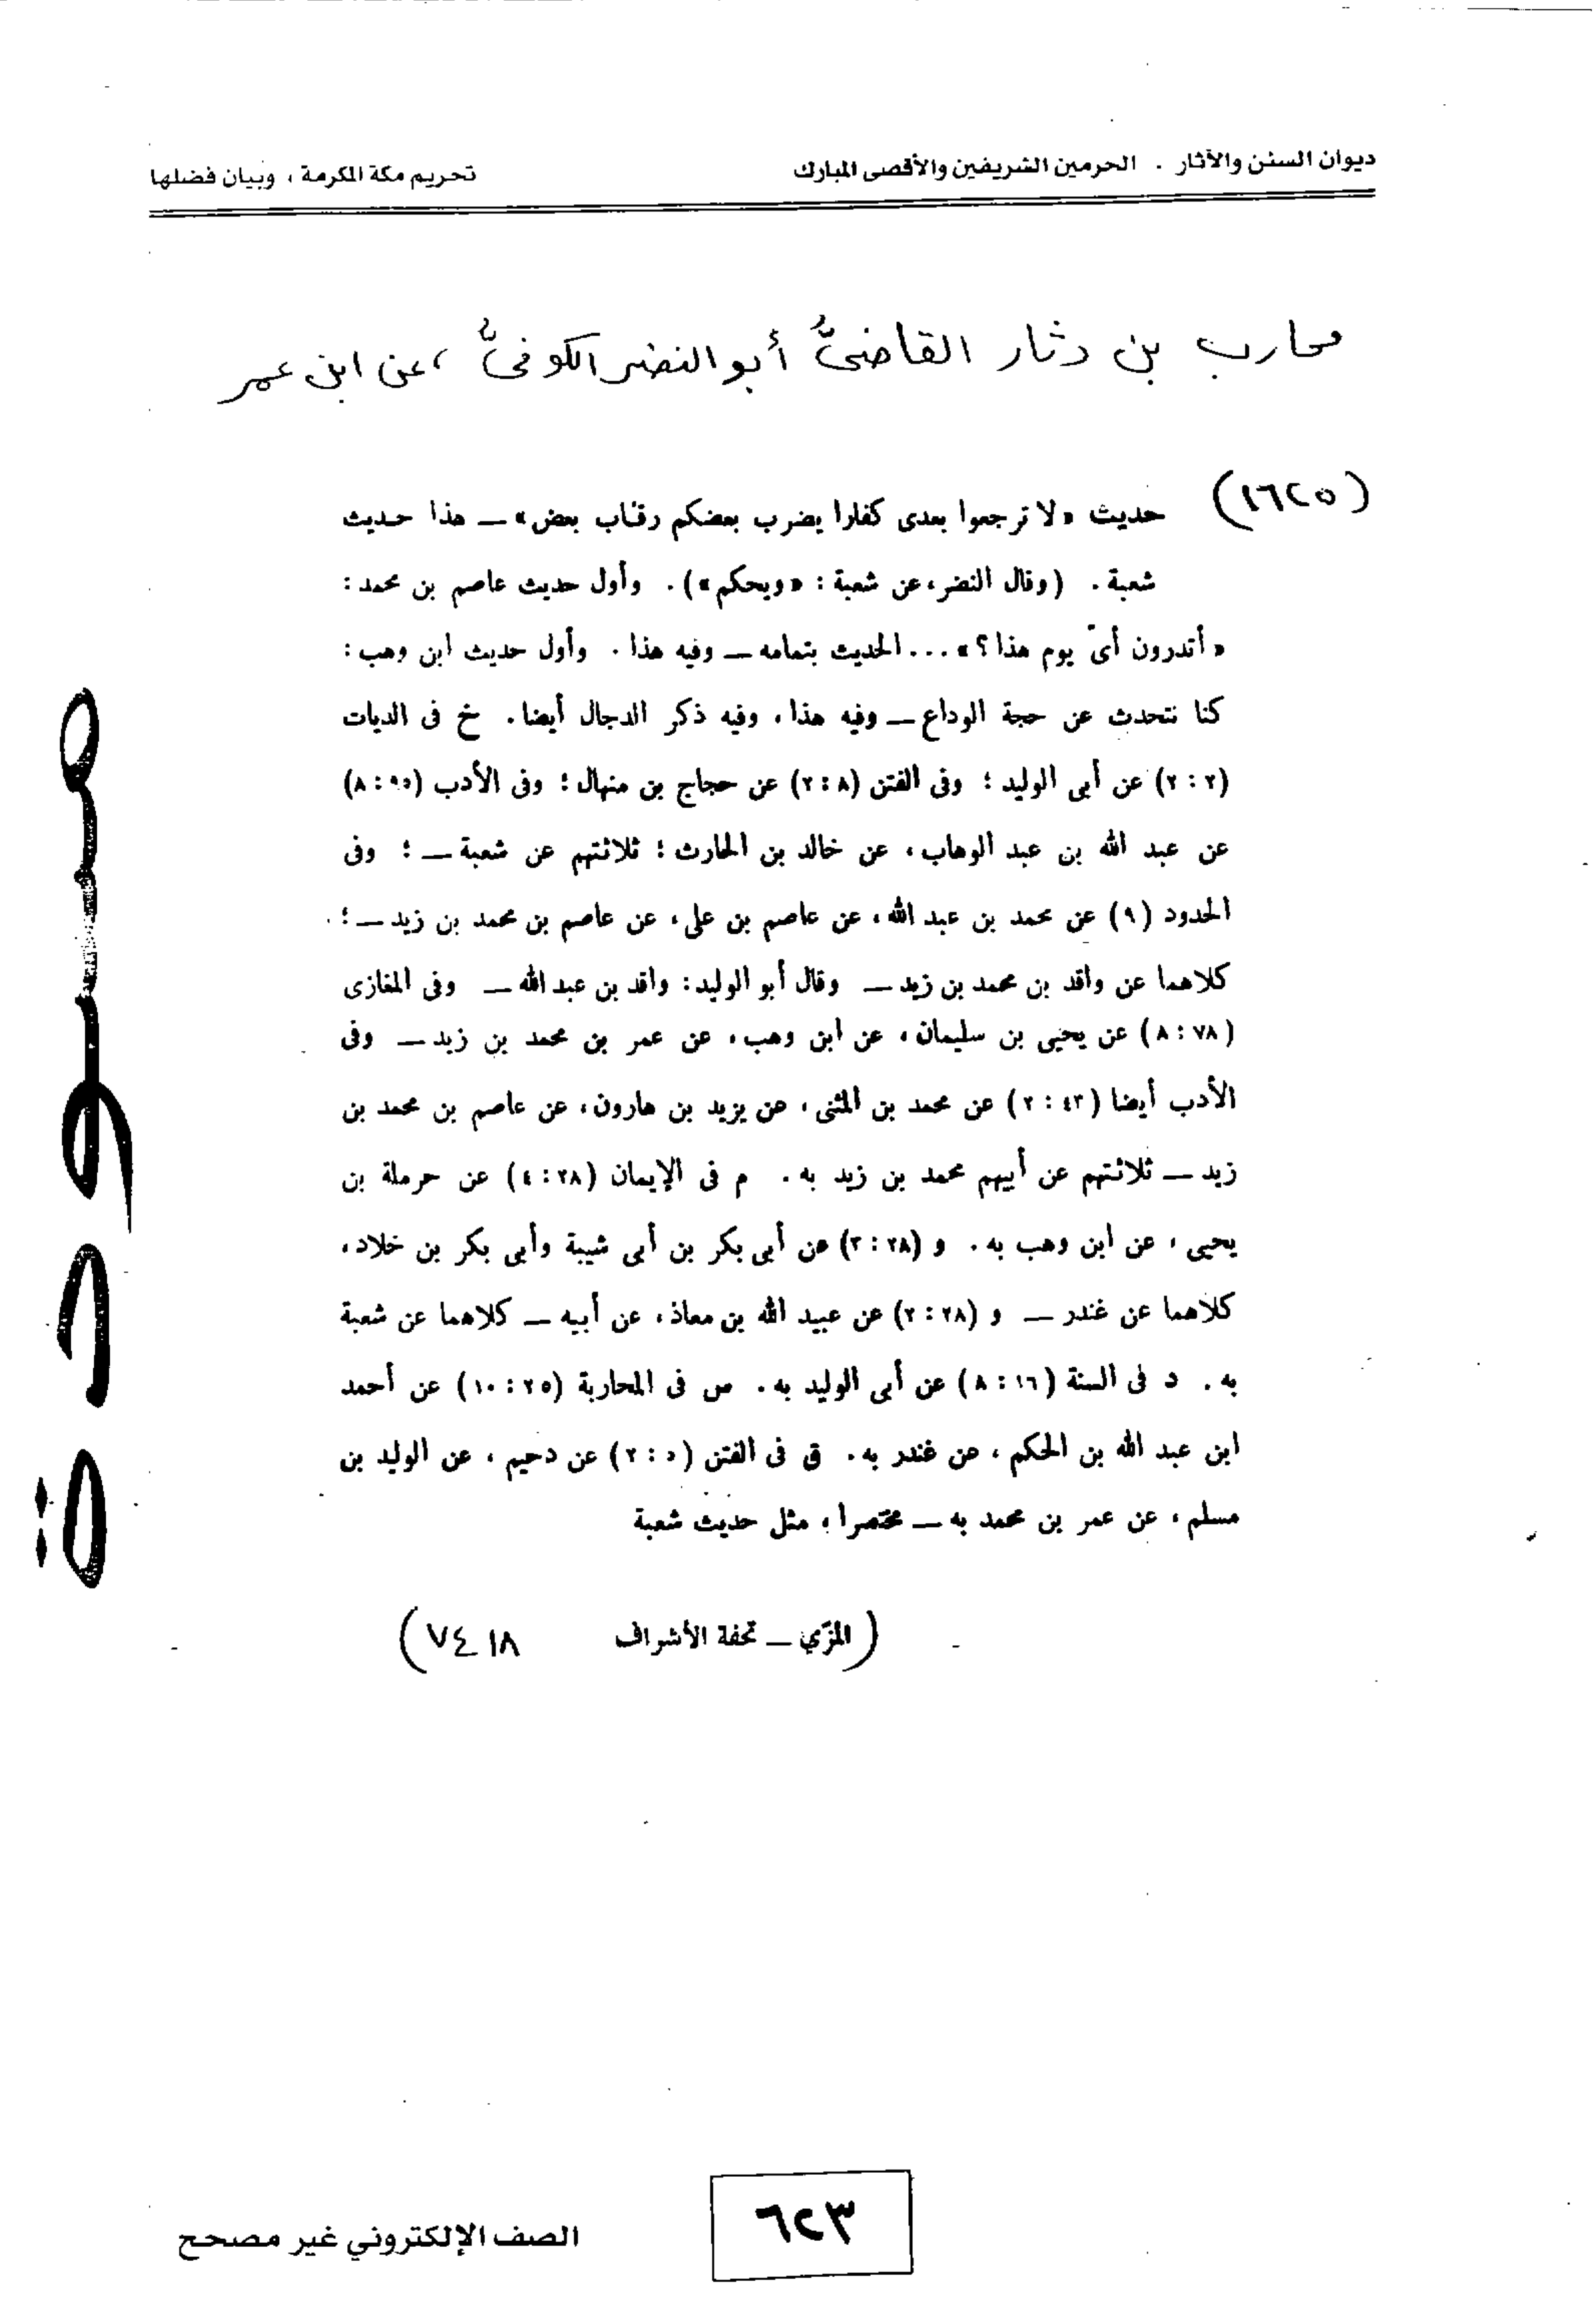 ديوان السنن والآثار . الحرمين الشريفين والأقصى المبارك
تحريم مكة المكرمة ، وبيان فضلها
محارب بن دثار القاضىُّ أبو النضر الكوفىُّ ، عن ابن عمر
(١٦٢٥) حديث «لا ترجعوا بعدى كفارا يضرب بعضكم رقاب بعض» ــ هذا حديث
شعبة . (وقال النضر، عن شعبة : «ويحكم») . وأول حديث عاصم بن محمد :
«أتدرون أىّ يوم هذا؟» ... الحديث بتمامه ــ وفيه هذا . وأول حديث ابن وهب :
كنا نتحدث عن حجة الوداع ــ وفيه هذا ، وفيه ذكر الدجال أيضا . خ فى الديات
(٢ : ٢) عن أبى الوليد ؛ وفى الفتن (٨ : ٢) عن حجاج بن منهال ؛ وفى الأدب (٩٥ : ٨)
عن عبد الله بن عبد الوهاب ، عن خالد بن الحارث ؛ ثلاثتهم عن شعبة ــ ؛ وفى
الحدود (٩) عن محمد بن عبد الله ، عن عاصم بن على ، عن عاصم بن محمد بن زيد ــ ؛
كلاهما عن واقد بن محمد بن زيد ــ وقال أبو الوليد : واقد بن عبد الله ــ وفى المغازى
(٧٨ : ٨) عن يحيى بن سليمان ، عن ابن وهب ، عن عمر بن محمد بن زيد ــ وفى
الأدب أيضا (٤٣ : ٢) عن محمد بن المثنى ، عن يزيد بن هارون ، عن عاصم بن محمد بن
زيد ــ ثلاثتهم عن أبيهم محمد بن زيد به . م فى الإيمان (٢٨ : ٤) عن حرملة بن
يحيى ، عن ابن وهب به . و (٢٨ : ٣) عن أبى بكر بن أبى شيبة وأبى بكر بن خلاد ،
كلاهما عن غندر ــ و (٢٨ : ٢) عن عبيد الله بن معاذ ، عن أبيه ــ كلاهما عن شعبة
به . د فى السنة (١٦ : ٨) عن أبى الوليد به . س فى المحاربة (٢٥ : ١٠) عن أحمد
ابن عبد الله بن الحكم ، عن غندر به . ق فى الفتن (٥ : ٢) عن دحيم ، عن الوليد بن
مسلم ، عن عمر بن محمد به ــ مختصرا ؛ مثل حديث شعبة
(المزّي ــ تحفة الأشراف ٧٤١٨)
مسودة
:
٦٢٣
الصف الإلكتروني غير مصحح